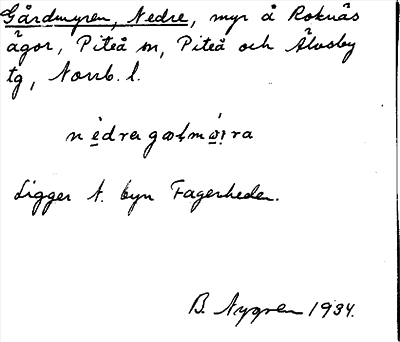 Gårdmyren, Nedre, myr å Roknäs
ägor, Piteå sn, Piteå och Älvsby
tg, Norrb. l.
Ligger N. byn Fagerheden.
B. Nygren 1934.